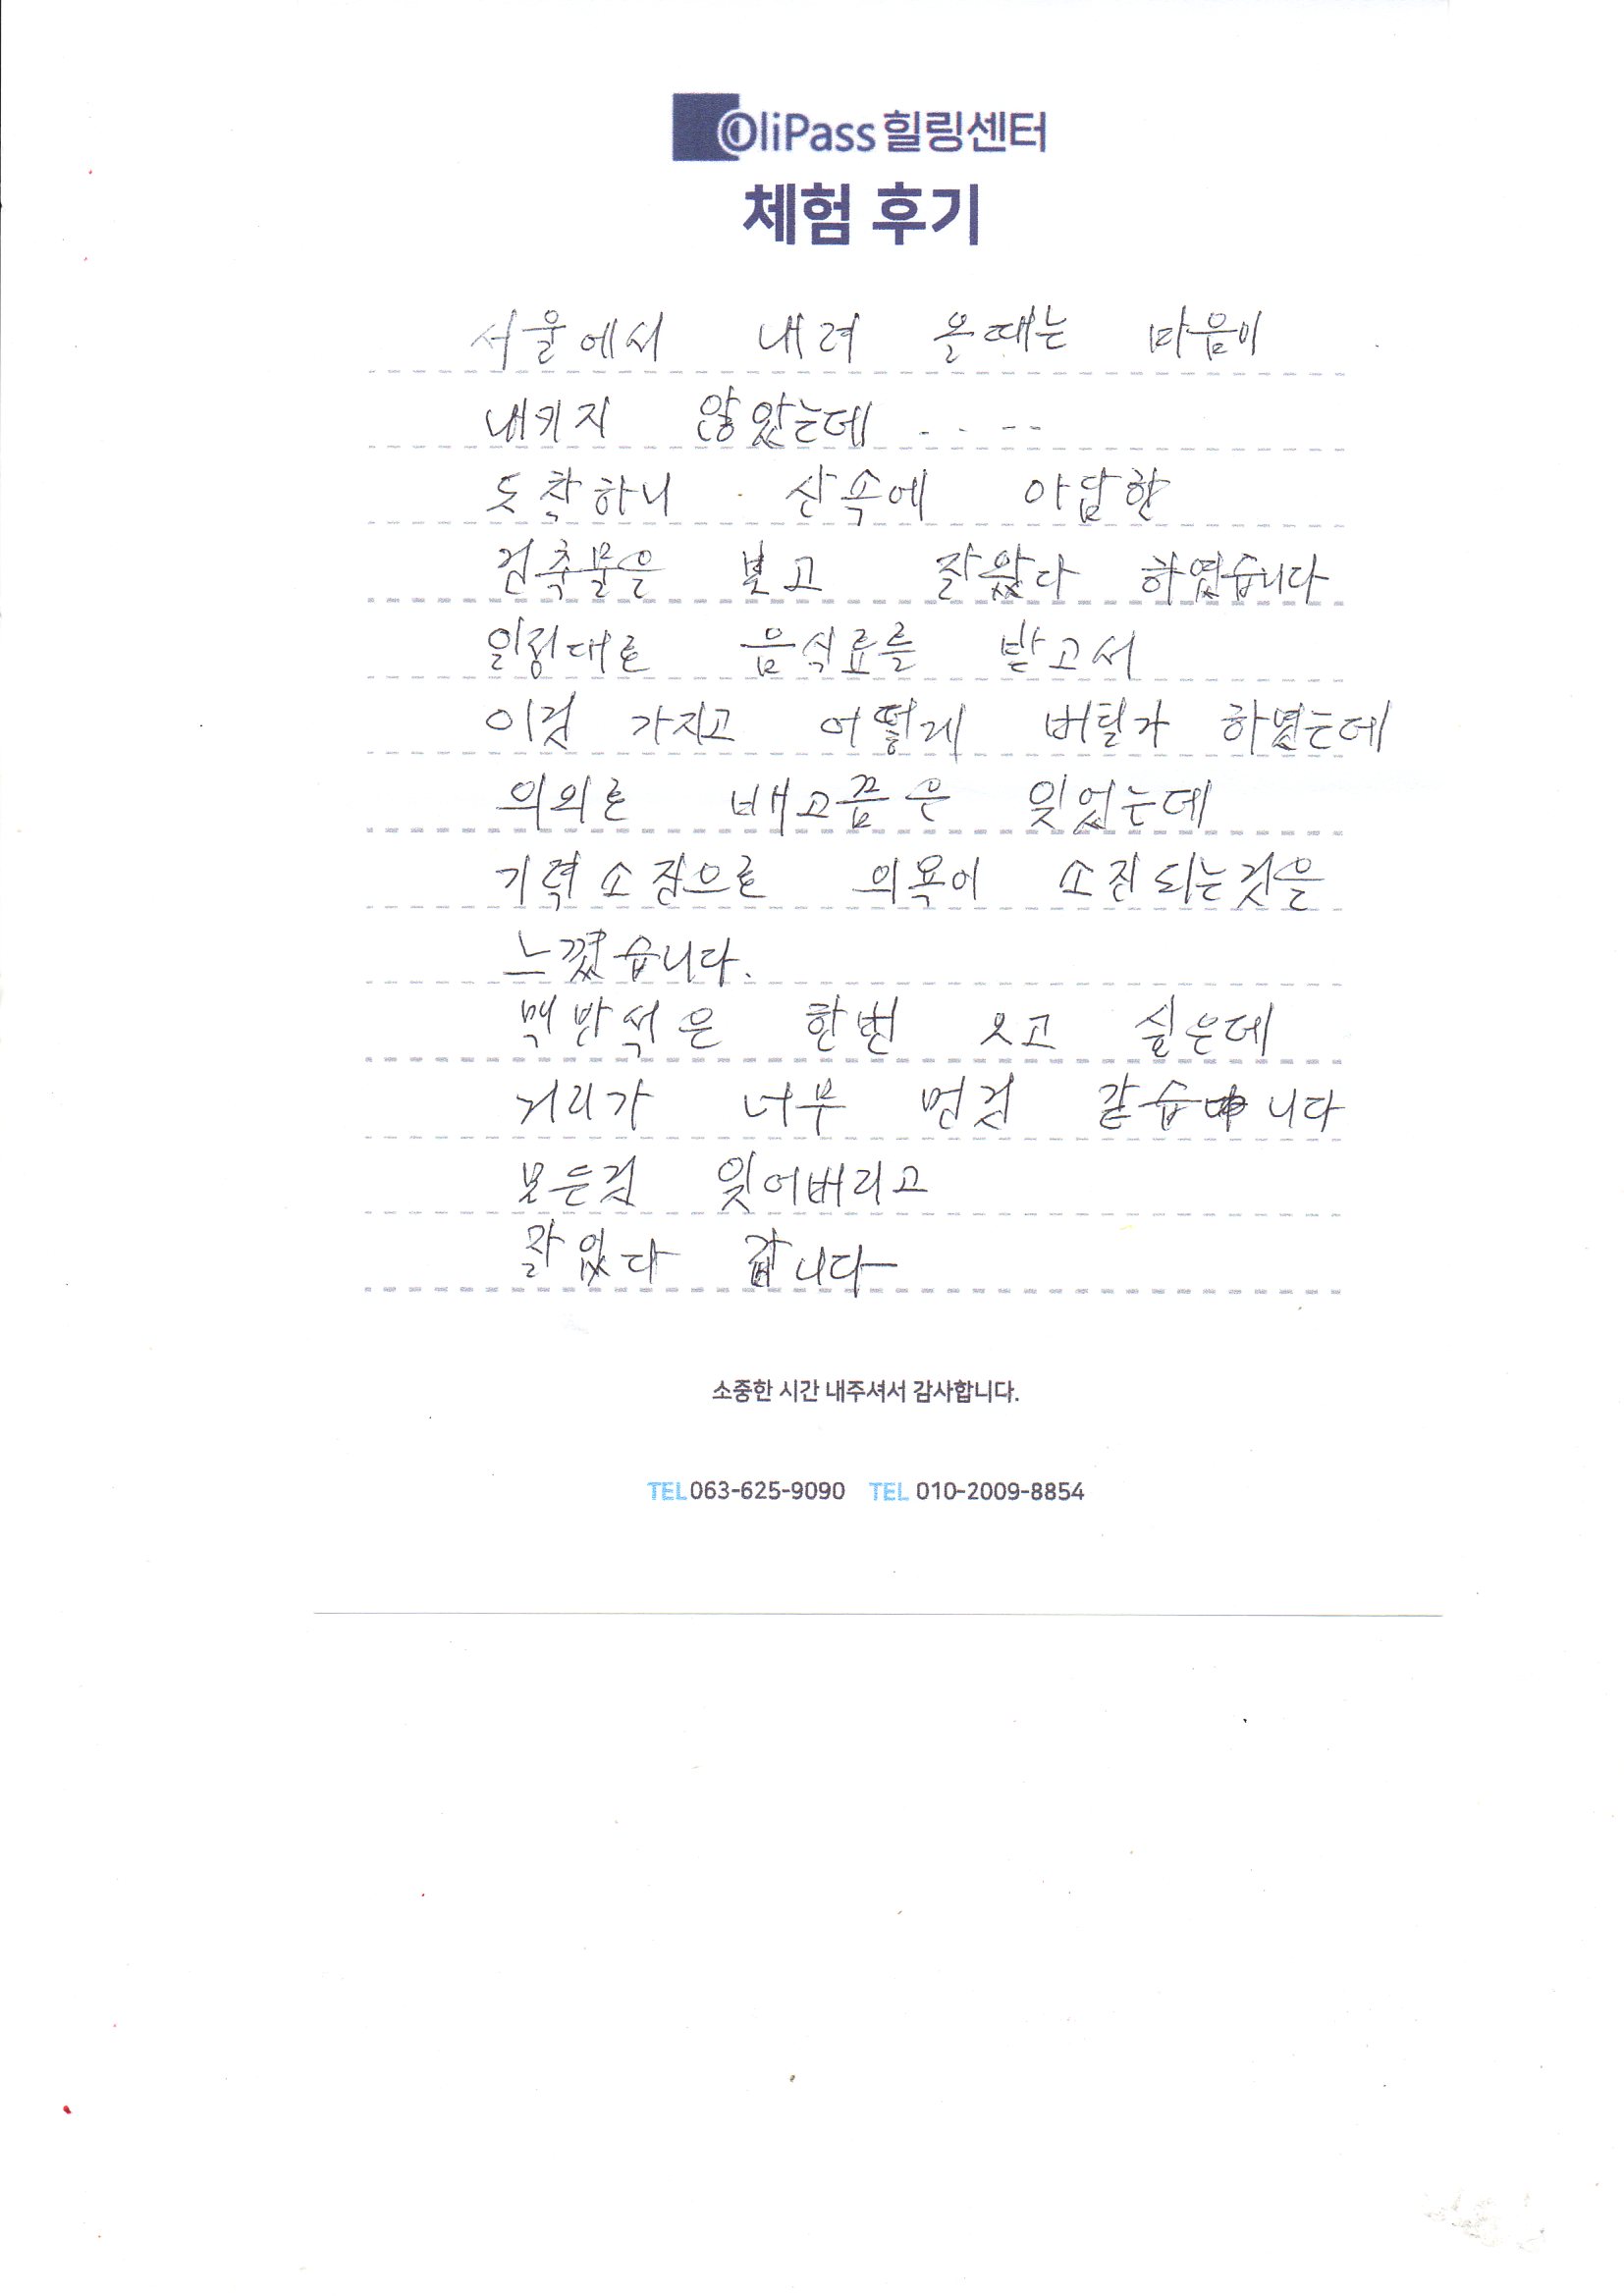 OliPass 힐링센터
체험 후기
서울에서 내려 올때는 마음이
내키지 않았는데 - - - -
도착하니 산속에 아담한
건축물을 보고 잘왔다 하였습니다
일정대로 음식료를 받고서
이것 가지고 어떻게 버틸가 하였는데
의외로 배고픔은 잊었는데
기력소진으로 의욕이 소진되는것을
느꼈습니다.
맥반석은 한번 오고 싶은데
거리가 너무 먼것 같습니다
모든것 잊어버리고
잘있다 갑니다
소중한 시간 내주셔서 감사합니다.
TEL 063-625-9090 TEL 010-2009-8854